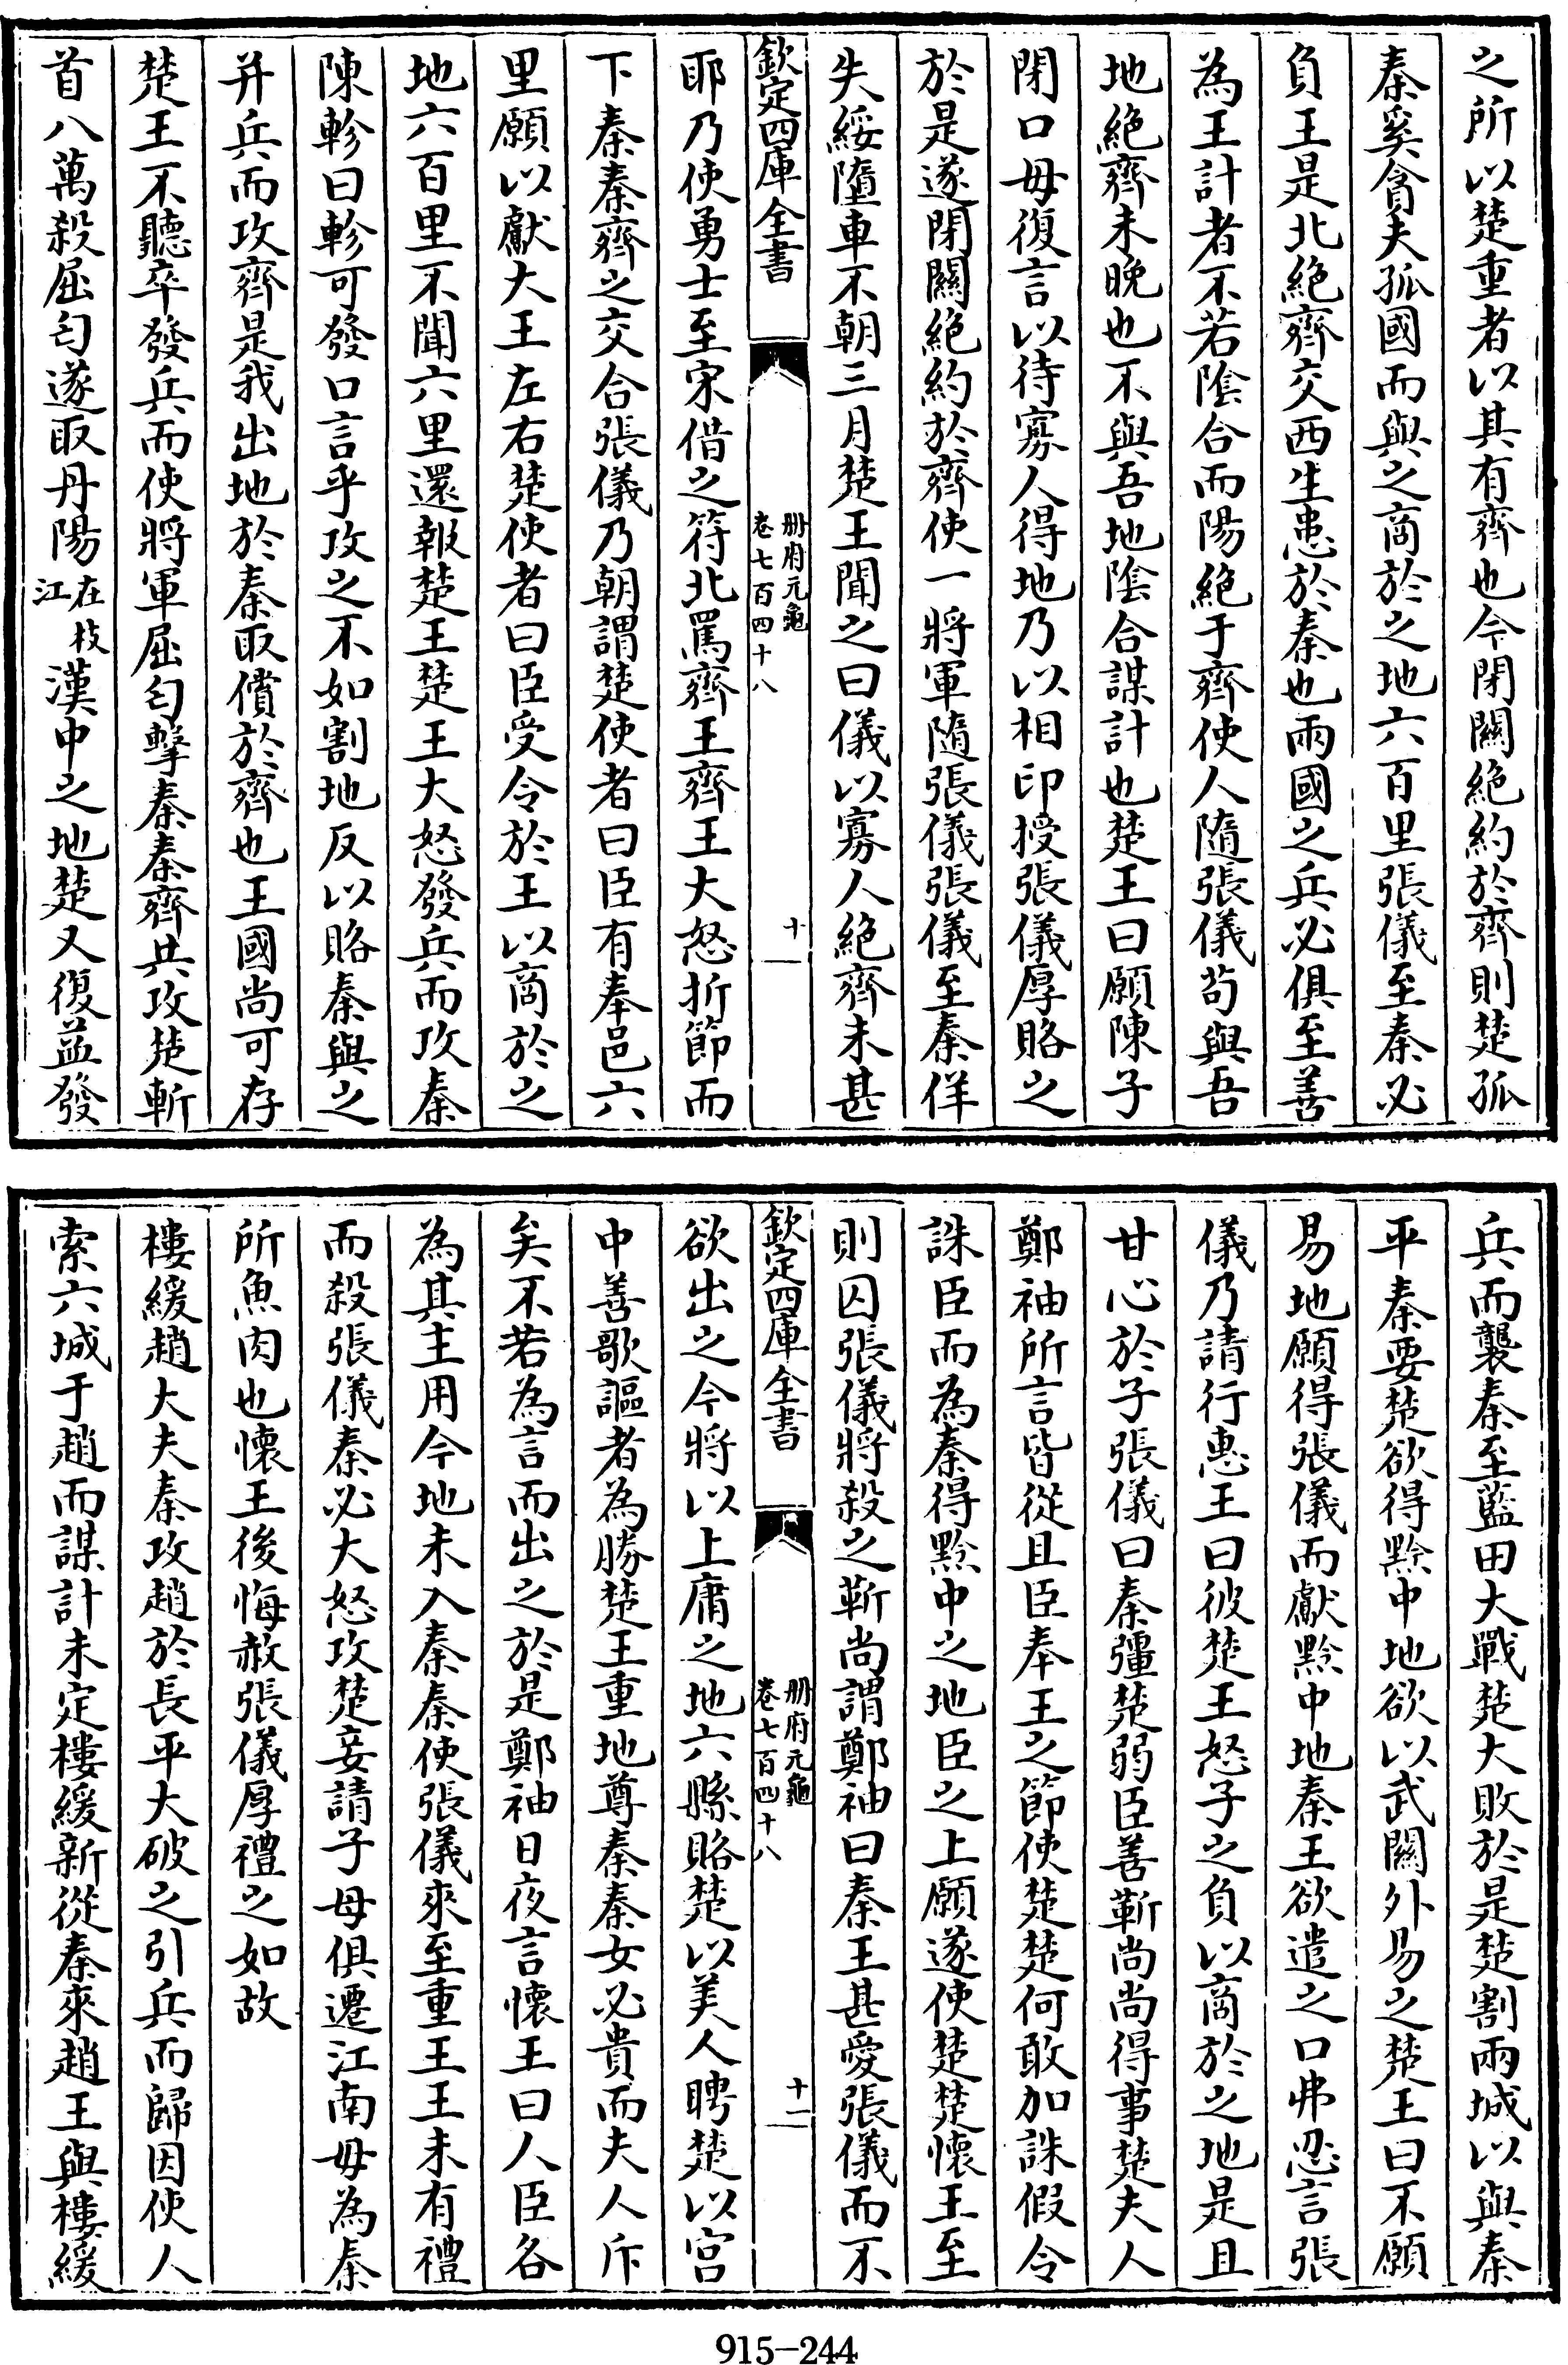 之所以楚重者以其有齊也今閉關絶約於齊則楚孤
秦奚貪夫孤國而與之商於之地六百里張儀至秦必
負王是北絶齊交西生患於秦也兩國之兵必俱至善
為王計者不若隂合而陽絶于齊使人隨張儀茍與吾
地絶齊未晚也不與吾地隂合謀計也楚王曰願陳子
閉口毋復言以待寡人得地乃以相印授張儀厚賂之
於是遂閉關絶約於齊使一將軍隨張儀張儀至秦佯
失綏墮車不朝三月楚王聞之曰儀以寡人絶齊未甚
欽定四庫全書
册府元龜
卷七百四十八
十一
耶乃使勇士至宋借之符北罵齊王齊王大怒折節而
下秦秦齊之交合張儀乃朝謂楚使者曰臣有奉邑六
里願以獻大王左右楚使者曰臣受令於王以商於之
地六百里不聞六里還報楚王楚王大怒發兵而攻秦
陳軫曰軫可發口言乎攻之不如割地反以賂秦與之
并兵而攻齊是我出地於秦取償於齊也王國尚可存
楚王不聽卒發兵而使將軍屈匄擊秦秦齊共攻楚斬
首八萬殺屈匄遂取丹陽在枝江漢中之地楚又復益發
兵而襲秦至藍田大戰楚大敗於是楚割兩城以與秦
平秦要楚欲得黔中地欲以武關外易之楚王曰不願
易地願得張儀而獻黔中地秦王欲遣之口弗忍言張
儀乃請行惠王曰彼楚王怒子之負以商於之地是且
甘心於子張儀曰秦彊楚弱臣善靳尚尚得事楚夫人
鄭袖所言皆從且臣奉王之節使楚楚何敢加誅假令
誅臣而為秦得黔中之地臣之上願遂使楚楚懐王至
則囚張儀將殺之靳尚謂鄭袖曰秦王甚愛張儀而不
欽定四庫全書
册府元龜
卷七百四十八
十二
欲出之今將以上庸之地六縣賂楚以美人聘楚以宫
中善歌謳者為勝楚王重地尊秦秦女必貴而夫人斥
矣不若為言而出之於是鄭袖日夜言懐王曰人臣各
為其主用今地未入秦秦使張儀來至重王王未有禮
而殺張儀秦必大怒攻楚妾請子母俱遷江南毋為秦
所魚肉也懐王後悔赦張儀厚禮之如故
樓緩趙大夫秦攻趙於長平大破之引兵而歸因使人
索六城于趙而謀計未定樓緩新從秦來趙王與樓緩
915-244